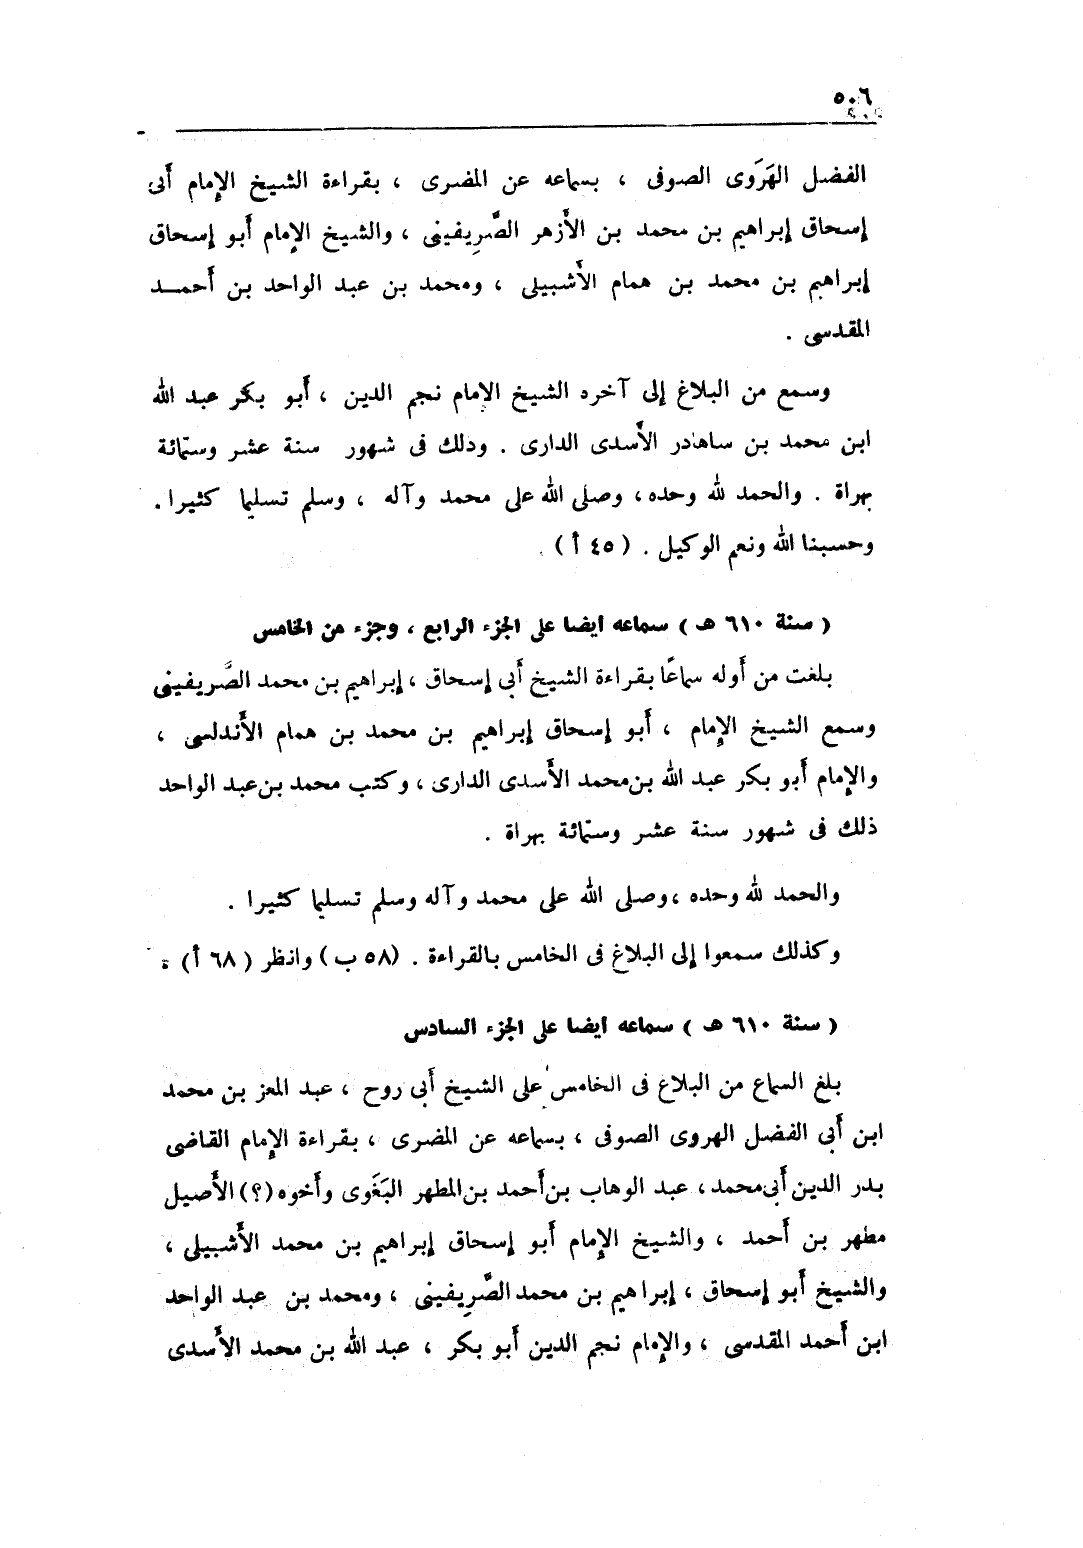 ٥٠٦
الفضل الهَرَوى الصوفى ، بسماعه عن المضرى ، بقراءة الشيخ الإمام أبى
إسحاق إبراهيم بن محمد بن الأزهر الصَّرِيفينى ، والشيخ الإمام أبو إسحاق
إبراهيم بن محمد بن همام الأشبيلى ، ومحمد بن عبد الواحد بن أحمــد
المقدسى .
وسمع من البلاغ إلى آخره الشيخ الإمام نجم الدين ، أبو بكر عبد الله
ابن محمد بن ساهادر الأسدى الدارى . وذلك فى شهور سنة عشر وستمائة
بهراة . والحمد لله وحده ، وصلى الله على محمد وآله ، وسلم تسليما كثيرا .
وحسبنا الله ونعم الوكيل . ( ٤٥ أ ) .
( سنة ٦١٠ هـ ) سماعه ايضا على الجزء الرابع ، وجزء من الخامس
بلغت من أوله سماعًا بقراءة الشيخ أبى إسحاق ، إبراهيم بن محمد الصَّريفينى
وسمع الشيخ الإمام ، أبو إسحاق إبراهيم بن محمد بن همام الأندلسى ،
والإمام أبو بكر عبد الله بن محمد الأسدى الدارى ، وكتب محمد بن عبد الواحد
ذلك فى شهور سنة عشر وستمائة بهراة .
والحمد لله وحده ، وصلى الله على محمد وآله وسلم تسليما كثيرا .
وكذلك سمعوا إلى البلاغ فى الخامس بالقراءة . (٥٨ ب) وانظر ( ٦٨ أ) ؛
( سنة ٦١٠ هـ ) سماعه ايضا على الجزء السادس
بلغ السماع من البلاغ فى الخامس على الشيخ أبى روح ، عبد المعز بن محمد
ابن أبى الفضل الهروى الصوفى ، بسماعه عن المضرى ، بقراءة الإمام القاضى
بدر الدين أبى محمد ، عبد الوهاب بن أحمد بن المطهر البَغَوى وأخوه (؟) الأصيل
مطهر بن أحمد ، والشيخ الإمام أبو إسحاق إبراهيم بن محمد الأشبيلى ،
والشيخ أبو إسحاق ، إبراهيم بن محمد الصَّرِيفينى ، ومحمد بن عبد الواحد
ابن أحمد المقدسى ، والإمام نجم الدين أبو بكر ، عبد الله بن محمد الأسدى